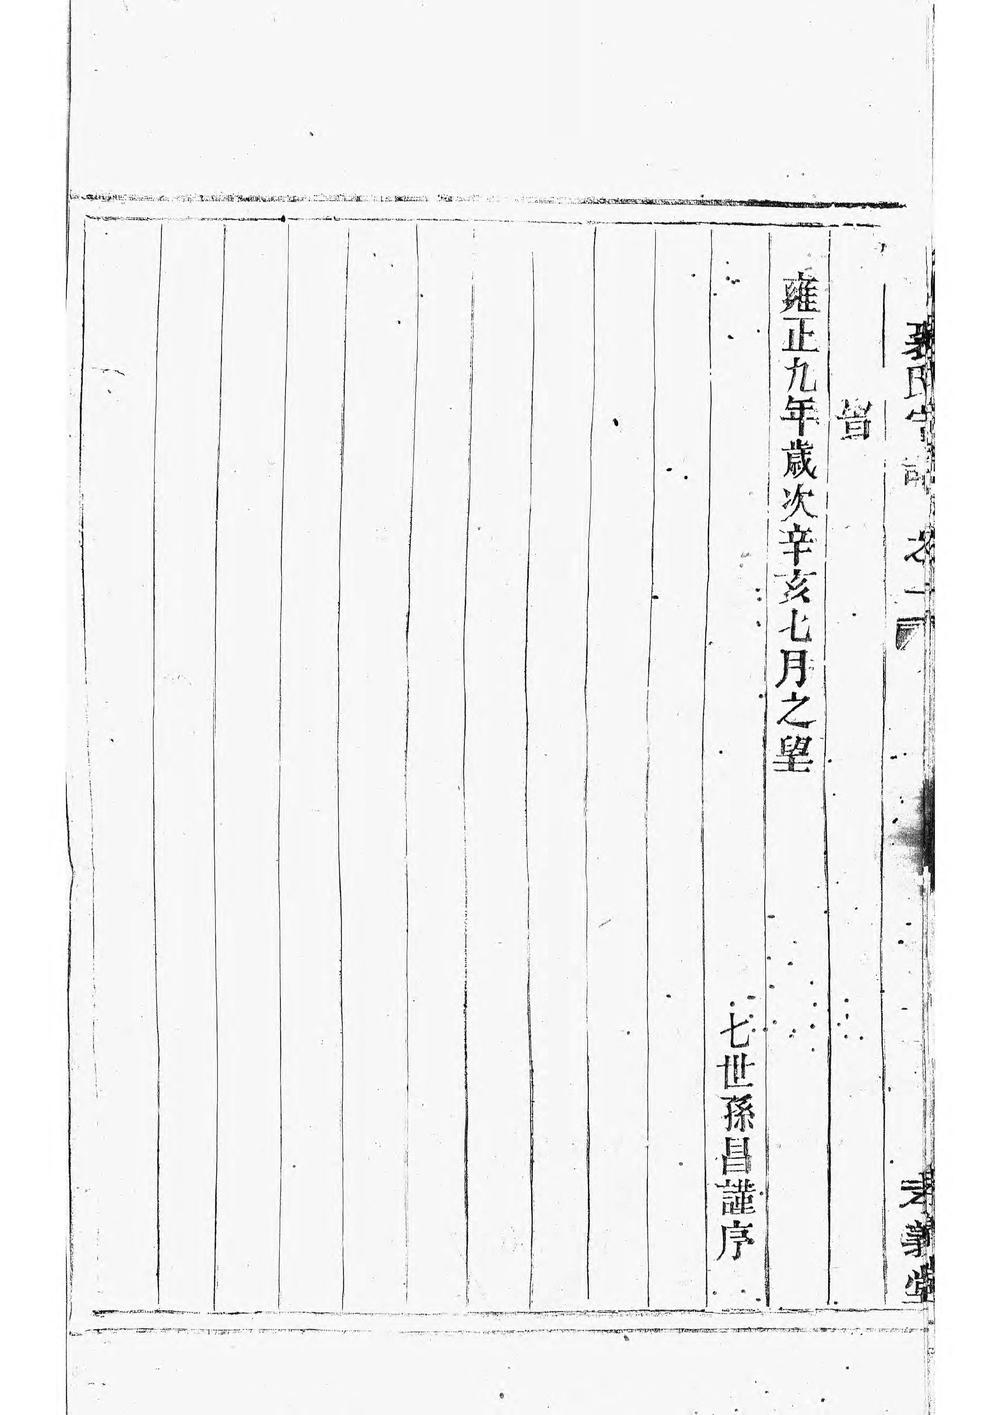 氏宗譜
義堂
旹
雍正九年歲次辛亥七月之望
七世孫昌謹序